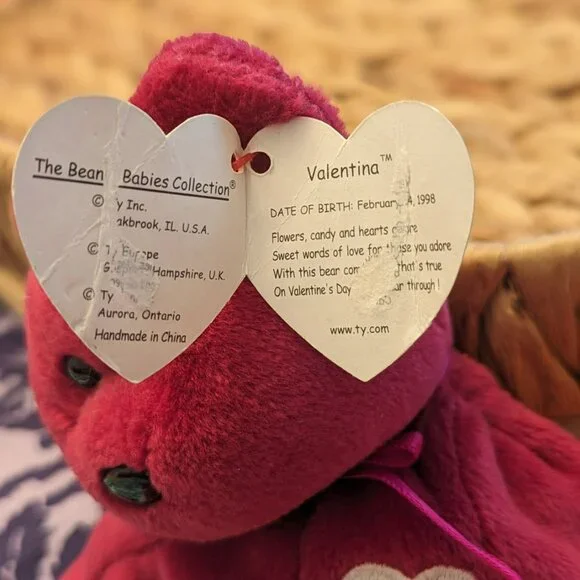 The Bean Babies Collection®
© Ty Inc.
akbrook, IL. U.S.A.
© Europe
Hampshire, U.K.
© Ty
Aurora, Ontario
Handmade in China
Valentina™
DATE OF BIRTH: Februar 4, 1998
Flowers, candy and hearts
Sweet words of love for those you adore
With this bear com that's true
On Valentine's Day through !
www.ty.com